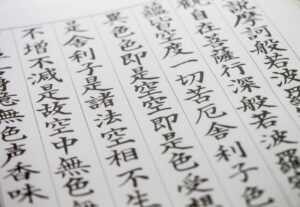 説摩訶般若波
観自在菩薩行深般若波
空度一切苦厄舎利子色
色色即是空空即是色受想
是舎利子是諸法空相不生
不増不減是故空中無色
意無色声香味